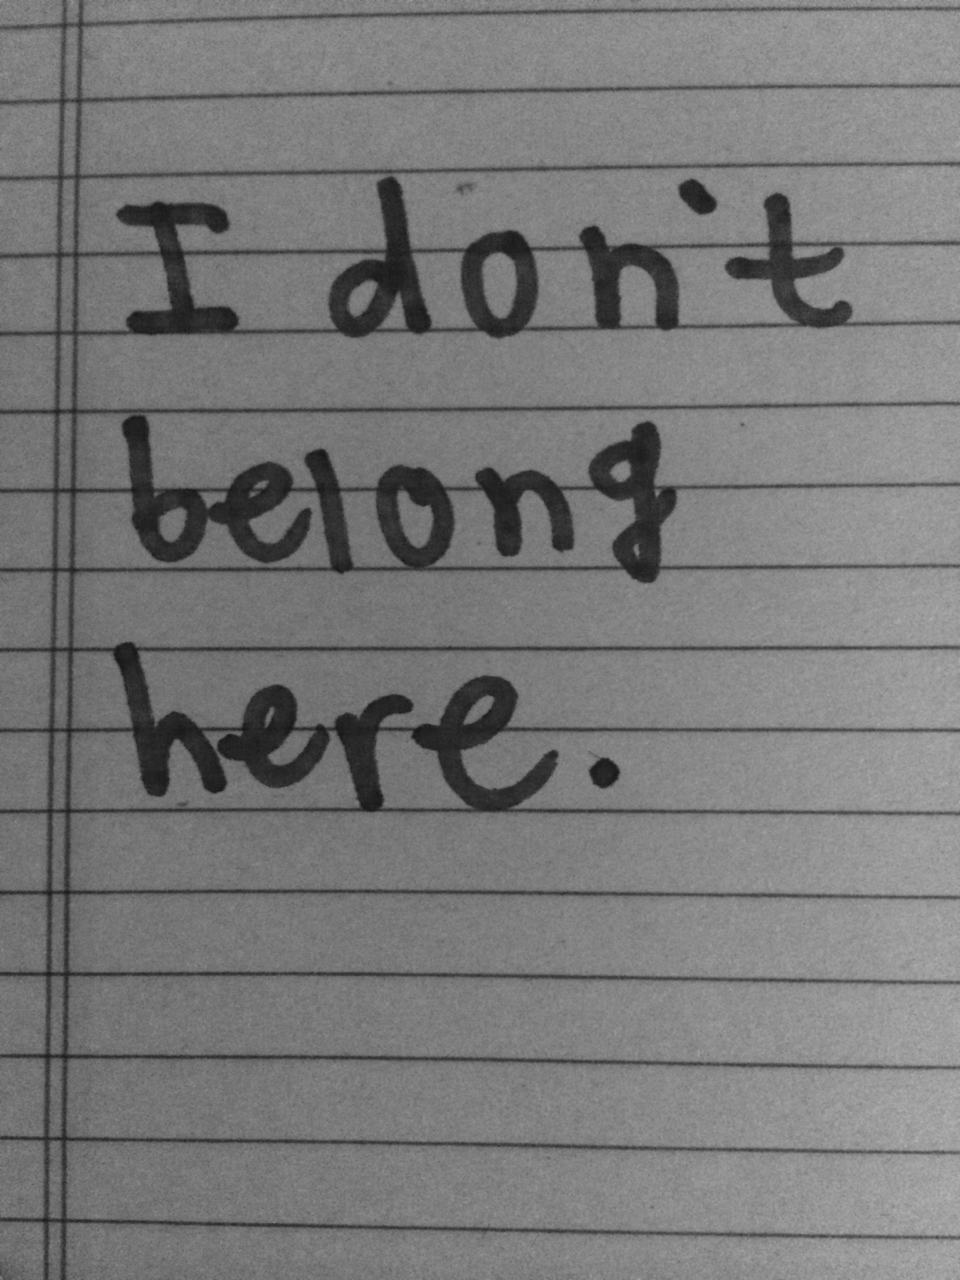 I don't
belong
here.